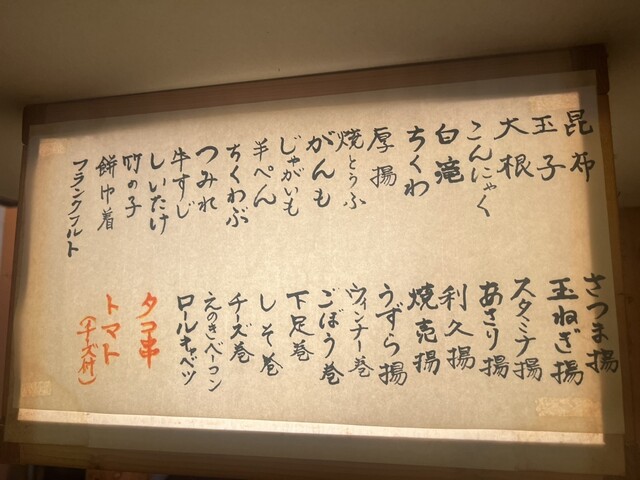 昆布
玉子
大根
こんにゃく
白滝
ちくわ
厚揚
焼とうふ
がんも
じゃがいも
羊ぺん
ちくわぶ
つみれ
牛すじ
しいたけ
竹の子
餅巾着
フランクフルト
さつま揚
玉ねぎ揚
スタミナ揚
あさり揚
利久揚
焼売揚
うずら揚
ウィンナー巻
ごぼう巻
下足巻
しそ巻
チーズ巻
えのきベーコン
ロールキャベツ
タコ串
トマト
(チーズ付)